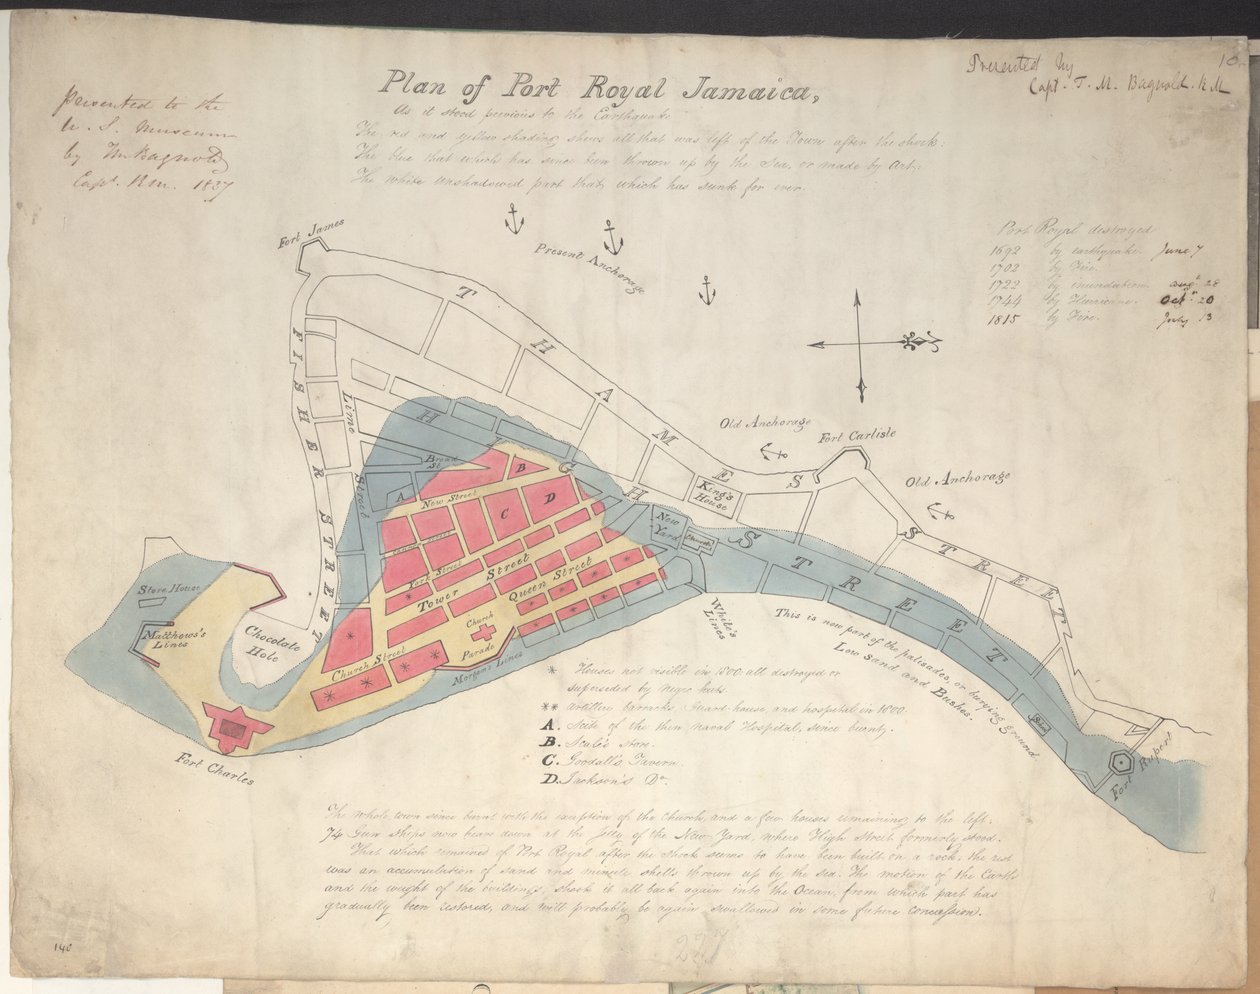 10
Presented by
Capt. T. M. Bagnold. R.M
Presented to the
U. S. Museum
by T M Bagnold
Capt. R.M. 1837
Plan of Port Royal Jamaica,
As it stood previous to the Earthquake
The red and yellow shading shews all that was left of the Town after the shock:
The blue that which has since been thrown up by the Sea, or made by Art:
The white unshadowed part that which has sunk for ever.
Port Royal destroyed
1692 by earthquake. June 7
1702 by Fire.
1722 by inundation. Aug. 28
1744 by Hurricane. Oct. 20
1815 by Fire. July 13
Fort James
Present Anchorage
THAMES STREET
FISHER STREET
Lime Street
HIGH STREET
Broad St
A
B
C
D
New Street
York Street
Tower Street
Queen Street
Church Street
Church
Parade
Morgan's Lines
King's House
New Yard
Church
Old Anchorage
Fort Carlisle
Old Anchorage
Store House
Matthews's Lines
Chocolate Hole
Fort Charles
White's Lines
This is now part of the palisades, or burying ground
Low Sand and Bushes.
Fort Rupert
* Houses not visible in 1800: all destroyed or
superseded by Negro huts.
** Artillery barracks, Guard-house, and hospital in 1800.
A. Scite of the then naval Hospital, since burnt.
B. Scale's store.
C. Goodall's Tavern.
D. Jackson's Do.
The whole town since burnt with the exception of the Church, and a few houses remaining to the left.
74 Gun Ships now heave down at the Jetty of the New Yard, where High Street formerly stood.
That which remained of Port Royal after the shock seems to have been built on a rock, the rest
was an accumulation of sand and minute shells thrown up by the sea. The motion of the Earth
and the weight of the buildings, shook it all back again into the Ocean, from which part has
gradually been restored, and will probably be again swallowed in some future concussion.
140